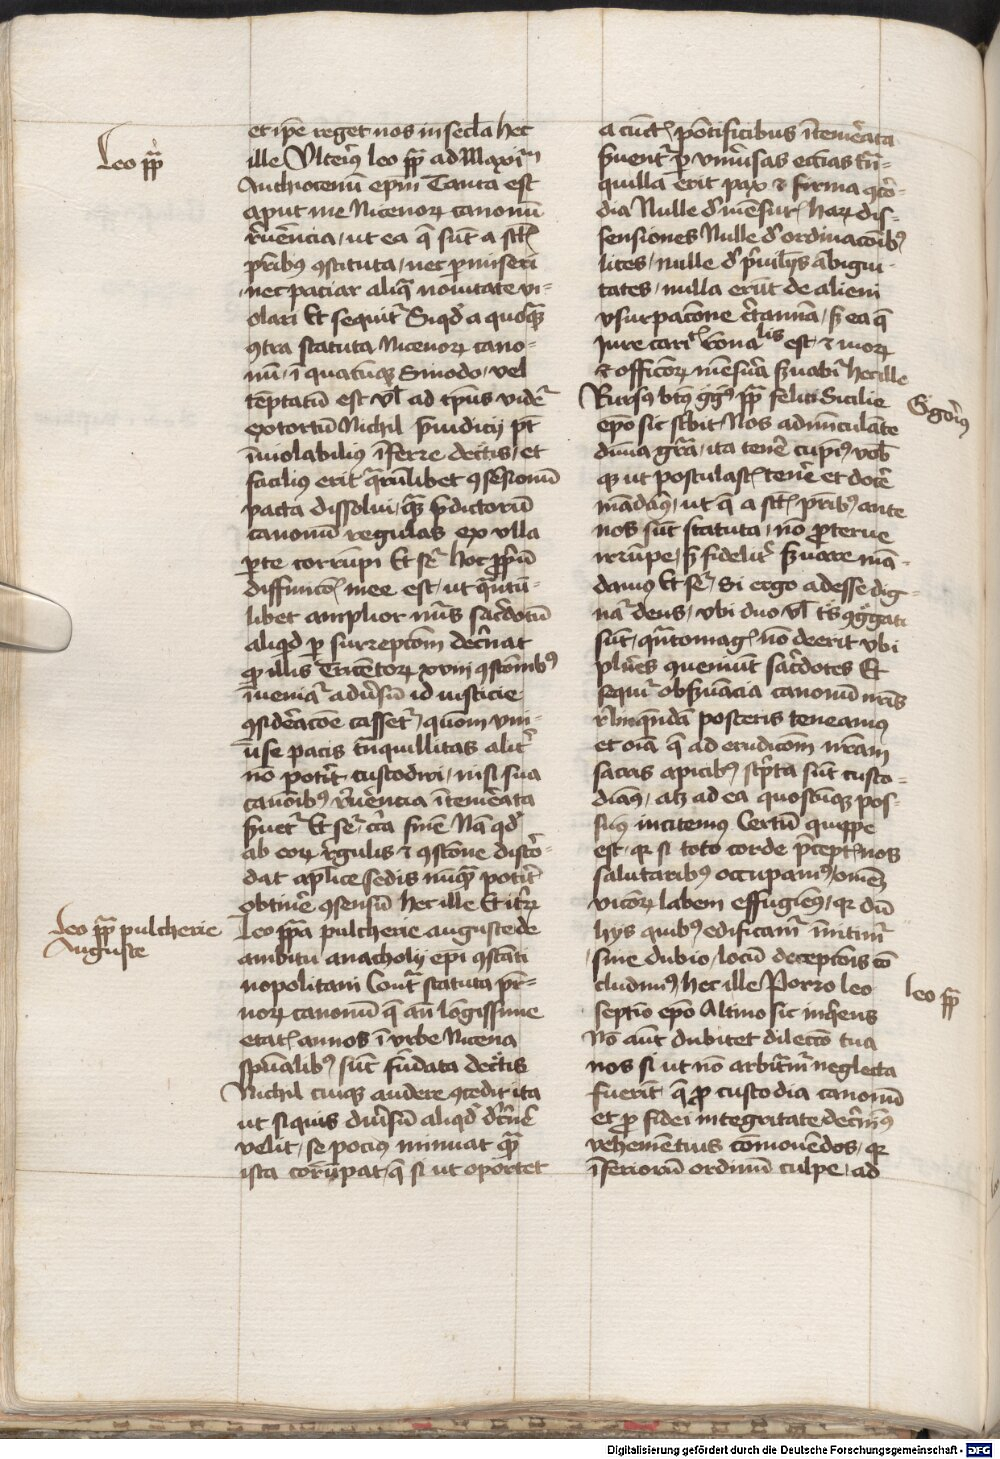 Leo pp̄
et ip̄e reget nos in secl̄a hec
ille Ulteriꝰ leo pp̄ ad Maximū
Anthiocenū ep̄m Tanta est
aput me Nicenoꝝ canonū
r̄uēncia / ut ea q̄ sūt a sctꝭ
pr̄ibꝰ ꝯstituta / nec ꝑmiseri
nec paciar aliq̄ nouitate vi-
olari Et sequit̄ Siqd̓ a quoqꝫ
ꝯtra statuta Nicenoꝝ cano-
nū / ī quatūqꝫ Smodo / vel
tēptatū est vl̄ ad tp̄us vider̄
extortū Nichil p̄iudicij pt̄
īuiolabiliꝰ īferre decr̄tis / et
faciliꝰ erit q̄rūlibet ꝯsēsionū
pacta dissolui / qꝫ p̄dictorū
canonū regulas ex vlla
ꝑte corrūpi Et sꝭ hoc ꝓpriū
diffinicōī mee est / ut q̄ntū-
libet amplior nūs sac̄dotū
aliqd̓ ꝑ surrepcōm dec̄nat
qꝫ illis Tricētoꝝ xviij ꝯstōnibꝰ
īueniat̄ adūsū id iusticie
ꝯsideracōe casset̄ / quom vni-
ūse pacis tn̄quillitas alit̄
nō poter̄t custodiri / nisi sua
canōibꝰ r̄uēncia ītem̄ata
s̄uet̄ Et sꝭ c̄ca finē Nā qd̓
ab eoꝝ r̄gulis ⁊ ꝯstōne discōr-
dat ap̄lice sedis nūqꝫ poter̄t
obtinē ꝯsensū hec ille Et it̄ꝝ
Leo pp̄ pulcherie
Auguste
Leo pp̄a pulcherie auguste de
ambitu anatholij ep̄i ꝯstāti
nopolitani Cont̄ statuta pr̄-
noꝝ canonū q̄ añ lōgissime
etatꝭ annos ī vrbe Nicena
sp̄ualibꝰ sūt fūdata decr̄tis
Nichil cuiqꝫ audere ꝯcedit ita
ut si quis diūsū aliqd̓ dc̄nē
velit / se pociꝰ minuat qꝫ
ista corrūpat / q̄ si ut oportet
a cūctꝭ pōtificibus ītem̄ata
s̄uent̄ ꝑ vniūsas eccīas tn̄-
quilla erit pax ⁊ firma ꝯcōr-
dia Nulle d̓ mēsurꝭ haꝝ dis-
sensiones Nulle d̓ ordinacōibꝰ
lites / nulle d̓ p̄uilegijs ābigui-
tates / nulla erūt de alieni
vsurpacōne c̄tamīa / sꝫ ea q̄
Jure caritꝭ rōnalis est / ⁊ moꝝ
⁊ officioꝝ mēsura s̄uabit̄ hec ille
Rursꝰ btꝰ ḡgꝰ pp̄ felici Sicilie
Gregoriꝰ
ep̄o sic scbit / Nos adiuuāte
diuina gr̄a / ita tenē cupiꝰ / vob̄
qꝫ ut postulastꝭ tenē et docē
mādamꝰ / ut q̄ a sctꝭ pr̄ibꝰ ante
nos sūt statuta / nō ꝓterue
irrūpe / sꝫ fidelit̄ s̄uare mā-
damꝰ Et sꝭ / Si ergo adesse dig-
nat̄ deus / vbi duo vl̄ tres ꝯgregati
sūt / q̄ntomagꝭ nō deerit vbi
plures queniūt sac̄dotes Et
sequit̄ obs̄uācia canonū nr̄is
r̄linquēda posteris teneamus
et oīa q̄ ad erudicōm nr̄am
sacris apicibꝰ sc̄pta sūt custo-
diamꝰ / atqꝫ ad ea quoscūqꝫ pos-
sumꝰ incitemꝰ Certū quippe
est / qꝛ si toto corde p̄ceptꝭ nos
salutaribꝰ occupamꝰ / omēꝫ
vicioꝝ labem effugiemꝰ / qꝛ dū
hijs quibꝰ edificam̄ īnitim̄
sine dubio / locū decepcōis cō
cludimꝰ hec ille Porro leo
leo pp̄
septīo ep̄o Altino sic inq̄rens
Nō aūt dubitet dilectō tua
nos si ut nō arbitram̄ neglecta
fuerīt q̄ ꝓ custodia canonū
et ꝓ fidei integritate dec̄nimꝰ
vehemētius cōmouēdos / qꝛ
īferiorū ordinū culpe / ad
Digitalisierung gefördert durch die Deutsche Forschungsgemeinschaft - DFG